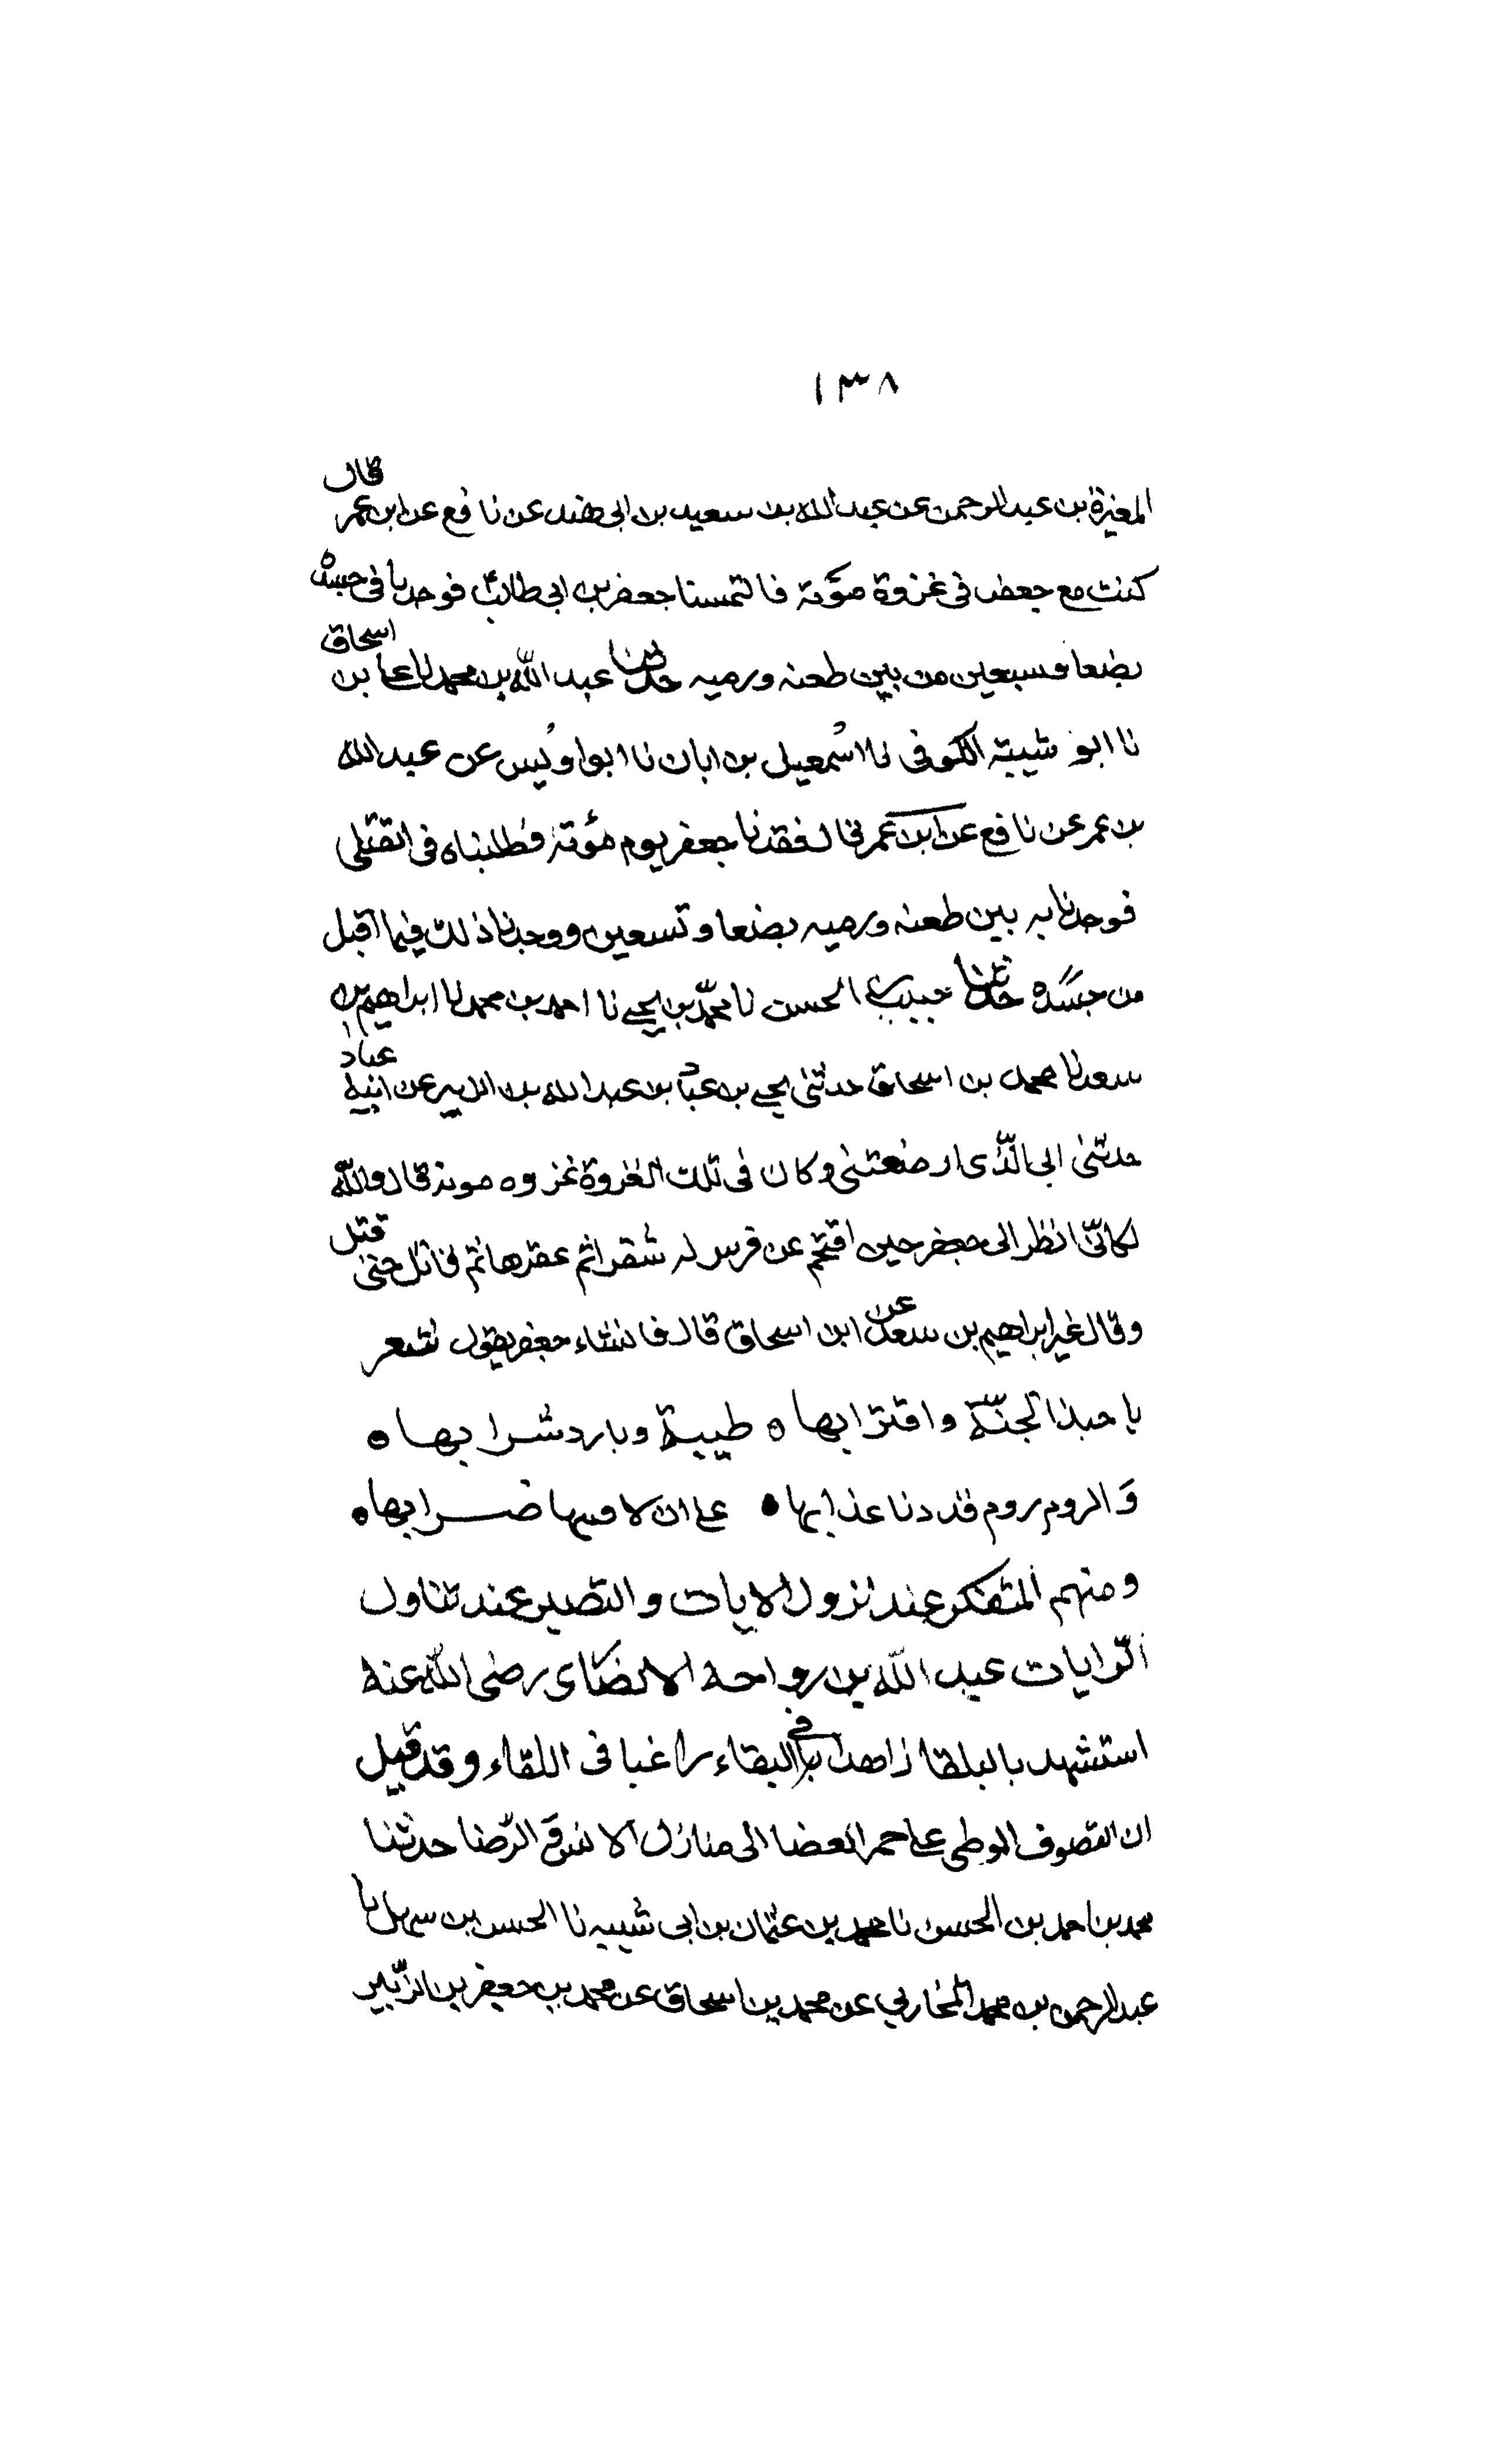 ١٣٨
المغيرة بن عبد الرحمن عن عبد الله بن سعيد بن ابى هند عن نافع عن ابن عمر قال
كنت مع جعفر فى غزوة مؤتة فالتمسنا جعفر بن ابى طالب فوجدنا فى جسده
بضعا وسبعين من بين طعنه ورميه حدثنا عبد الله بن محمد بن اسحاق
نا ابو شيبة الكوفى نا اسمعيل بن ابان نا ابو اويس عن عبد الله
بن عمر عن نافع عن ابن عمر قال فقدنا جعفر يوم مؤتة فطلبناه فى القتلى
فوجدنا به بين طعنه ورميه بضعا وتسعين ووجدنا ذلك فيما اقبل
من جسده حدثنا حبيب الحسن نا محمد بن يحيى نا احمد بن محمد نا ابراهيم بن
سعد نا محمد بن اسحاق حدثنى يحيى بن عباد بن عبد الله بن الزبير عن ابيه عباد
حدثنى ابى الذى ارضعتنى وكان فى تلك الغزوة غزوه موتة قال والله
لكانى انظر الى جعفر حين اقتحم عن فرس له شقرا ثم عقرها ثم قاتل حتى قتل
وقال غير ابراهيم بن سعد عن ابن اسحاق قال فانشاء جعفر يقول شعر
يا حبذا الجنة واقترابها ه طيبة وبارد شرابها ه
والروم روم قد دنا عذابها ه على ان لاقيتها ضرابها ه
ومنهم المتفكر عند نزول الايات والتصبر عند تناول
الرايات عبد الله بن رواحة الانصارى رضى الله عنه
استشهد بالبلقا زاهدا فى البقاء راغبا فى اللقاء وقد قيل
ان التصوف الوطى على جمر الغضا الى منازل الانس والرضا حدثنا
محمد بن احمد بن الحسن نا محمد بن عثمان بن ابى شيبه نا الحسن بن سهل نا
عبد الرحمن بن محمد المحاربي عن محمد بن اسحاق عن محمد بن جعفر بن الزبير